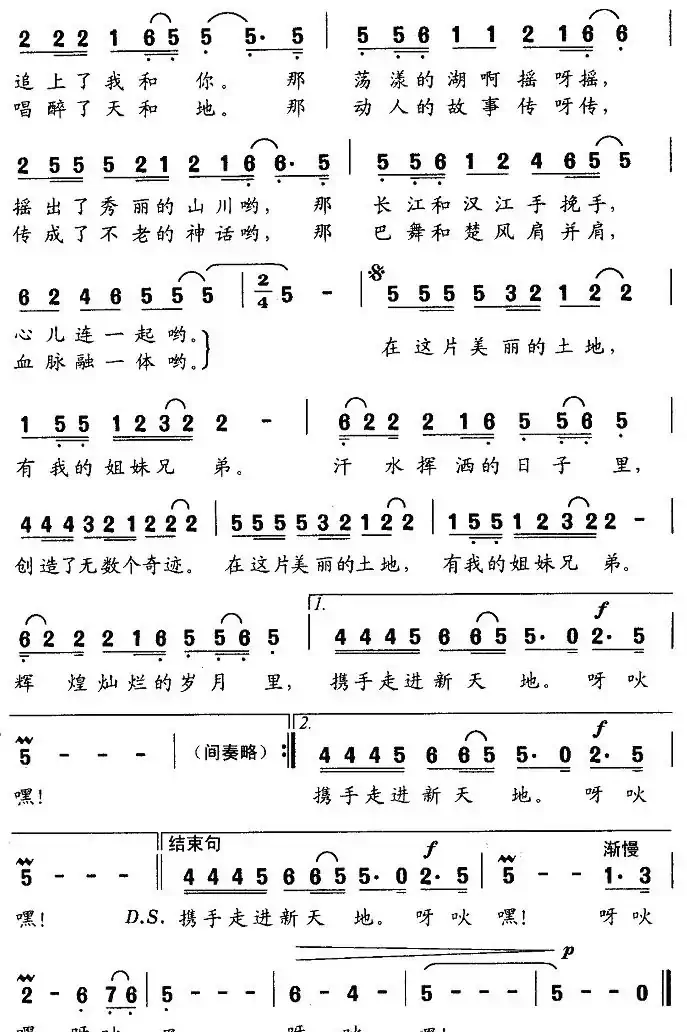 2 2 2 1 6 5 5 5· 5 | 5 5 6 1 1 2 1 6 6 |
追上了我和你。那荡漾的湖啊摇呀摇，
唱醉了天和地。那动人的故事传呀传，
2 5 5 5 2 1 2 1 6 6· 5 | 5 5 6 1 2 4 6 5 5 |
摇出了秀丽的山川哟，那长江和汉江手挽手，
传成了不老的神话哟，那巴舞和楚风肩并肩，
6 2 4 6 5 5 5 | 2/4 5 - | 5 5 5 5 3 2 1 2 2 |
心儿连一起哟。
血脉融一体哟。
在这片美丽的土地，
1 5 5 1 2 3 2 2 - | 6 2 2 2 1 6 5 5 6 5 |
有我的姐妹兄弟。汗水挥洒的日子里，
4 4 4 3 2 1 2 2 2 | 5 5 5 5 3 2 1 2 2 | 1 5 5 1 2 3 2 2 - |
创造了无数个奇迹。在这片美丽的土地，有我的姐妹兄弟。
1. f
6 2 2 2 1 6 5 5 6 5 | 4 4 4 5 6 6 5 5· 0 2· 5 |
辉煌灿烂的岁月里，携手走进新天地。呀吙
2. f
5 - - - | （间奏略） :‖ 4 4 4 5 6 6 5 5· 0 2· 5 |
嘿！携手走进新天地。呀吙
结束句 f 渐慢
5 - - - ‖ 4 4 4 5 6 6 5 5· 0 2· 5 | 5 - - 1· 3 |
嘿！D.S. 携手走进新天地。呀吙嘿！呀吙
p
2 - 6 7 6 | 5 - - - | 6 - 4 - | 5 - - - | 5 - - 0 ‖